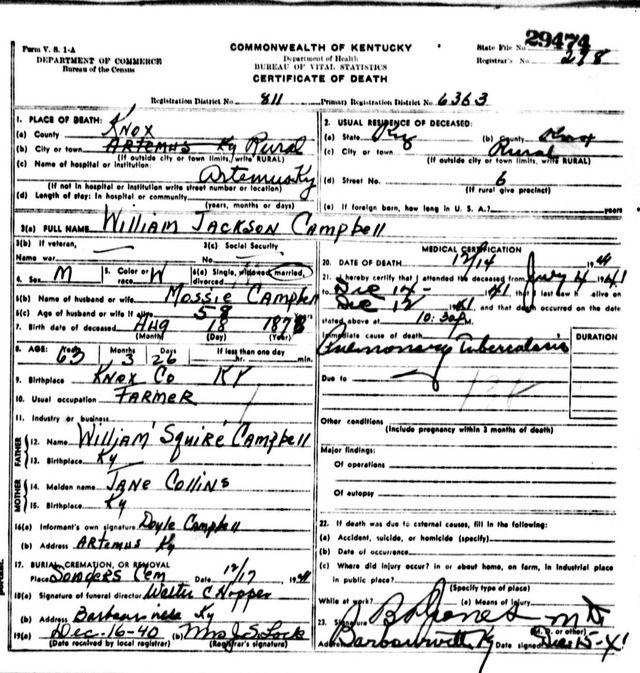 Form V. S. 1-A
DEPARTMENT OF COMMERCE
Bureau of the Census
COMMONWEALTH OF KENTUCKY
Department of Health
BUREAU OF VITAL STATISTICS
CERTIFICATE OF DEATH
State File No. 29474
Registrar's No. 278
Registration District No. 811 Primary Registration District No. 6363
1. PLACE OF DEATH:
(a) County Knox
(b) City or town Artemus Ky Rural
(If outside city or town limits, write RURAL)
(c) Name of hospital or institution:
Artemus Ky
(If not in hospital or institution write street number or location)
(d) Length of stay: In hospital or community
(years, months or days)
2. USUAL RESIDENCE OF DECEASED:
(a) State Ky (b) County Knox
(c) City or town Rural
(If outside city or town limits, write RURAL)
(d) Street No. 6
(If rural give precinct)
(e) If foreign born, how long in U. S. A.? years
3(a) FULL NAME William Jackson Campbell
3(b) If veteran,
Name war
3(c) Social Security
No.
4. Sex M
5. Color or race W
6(a) Single, widowed, married, divorced
6(b) Name of husband or wife Mossie Campbell
6(c) Age of husband or wife if alive 58 years
7. Birth date of deceased Aug 18 1878
(Month) (Day) (Year)
8. AGE: Years 63 Months 3 Days 26 If less than one day
hr. min.
9. Birthplace Knox Co Ky
10. Usual occupation Farmer
11. Industry or business
FATHER
12. Name William 'Squire' Campbell
13. Birthplace Ky
MOTHER
14. Maiden name Jane Collins
15. Birthplace Ky
16(a) Informant's own signature Doyle Campbell
(b) Address Artemus Ky
17. BURIAL, CREMATION, OR REMOVAL
Place Cem Date 12/17 1941
18(a) Signature of funeral director Walter C Hopper
(b) Address Ky
19(a) Dec-16-40 (b) Mrs J S Lock
(Date received by local registrar) (Registrar's signature)
MEDICAL CERTIFICATION
20. DATE OF DEATH 12/14 1941
21. I hereby certify that I attended the deceased from July 4 1941
to Dec 14- 1941, that I last saw h alive on
Dec 12 1941, and that death occurred on the date
stated above at 10:30 P.M.
Immediate cause of death
Pulmonary Tuberculosis
DURATION
Due to
Other conditions
(Include pregnancy within 3 months of death)
Major findings:
Of operations
Of autopsy
22. If death was due to external causes, fill in the following:
(a) Accident, suicide, or homicide (specify)
(b) Date of occurrence
(c) Where did injury occur? in or about home, on farm, in industrial place
in public place?
(Specify type of place)
While at work? (e) Means of injury
23. Signature B Jones MD
(M. D. or other)
Address Barbourville Ky Date signed Dec 15-41